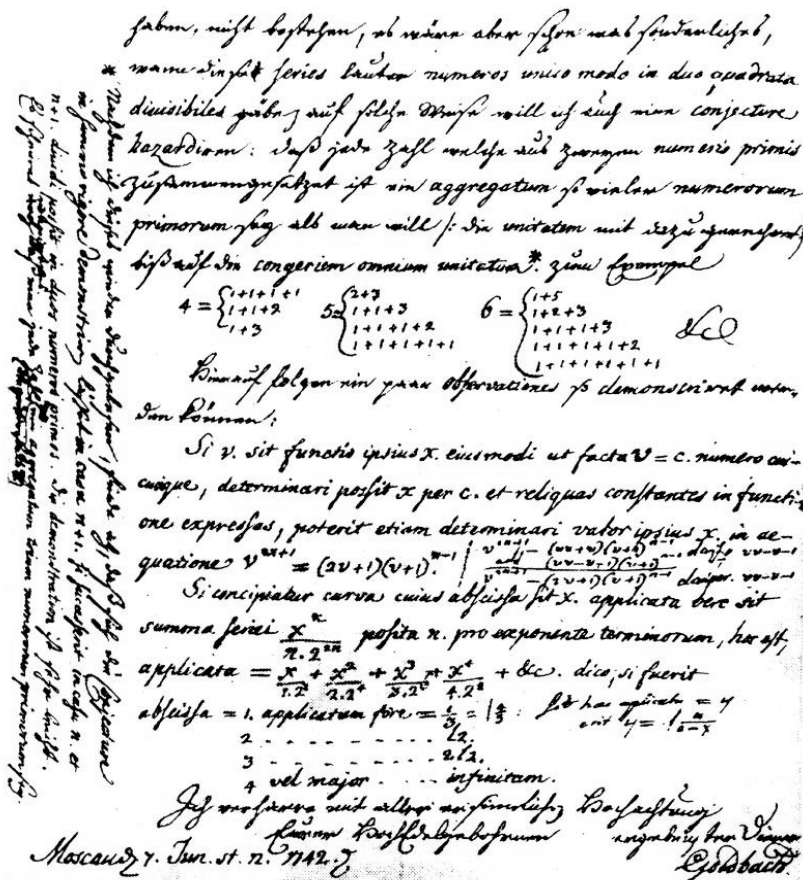 haben, nicht bestehen, es wäre aber schon was sonderliches,
wann diese series lauter numeros unico modo in duo quadrata
divisibiles gäbe, auf solche Weise will ich auch eine conjecture
hazardiren: daß jede Zahl welche aus zweyen numeris primis
zusammengesetzet ist ein aggregatum so vieler numerorum
primorum sey als man will /: die unitatem mit dazu gerechnet
biß auf die congeriem omnium unitatum* zum Exempel
4 = { 1+1+1+1
1+1+2
1+3
5 = { 2+3
1+1+3
1+1+1+2
1+1+1+1+1
6 = { 1+5
1+2+3
1+1+1+3
1+1+1+1+2
1+1+1+1+1+1
&c
Hierauf folgen ein paar observationes so demonstriret wer-
den können:
Si v. sit functio ipsius x. eiusmodi ut facta v = c. numero cui-
cunque, determinari possit x per c. et reliquas constantes in functi-
one expressas, poterit etiam determinari valor ipsius x. in ae-
quatione v^{2n+1} = (2v+1)(v+1)^{n-1}
Si concipiatur curva cuius abscissa sit x. applicata vero sit
summa seriei x^n/(n.2^{2n}) posita n. pro exponente terminorum, hoc est,
applicata = x/(1.2^2) + x^2/(2.2^4) + x^3/(3.2^6) + x^4/(4.2^8) + &c. dico, si fuerit
abscissa = 1. applicatam fore = l 4/3
2 - - - - - - - - l2.
3 - - - - - - - - 2l2.
4 vel major - - - infinitam.
Ich verharre mit aller ersinnlichen Hochachtung
Eurer Hochedelgebohrnen ergebenster Diener
Moscau d. 7. Jun. st. n. 1742. Goldbach.
* Nachdem ich dieses wieder durchgelesen, finde ich, daß sich die conjecture
in summo rigore demonstriren lässet in casu n+1. si successerit in casu n. et
n+1. dividi possit in duos numeros primos. Die demonstration ist sehr leicht.
Es scheinet wenigstens, daß eine jede Zahl, die größer ist als 2, ein aggregatum trium numerorum primorum sey.